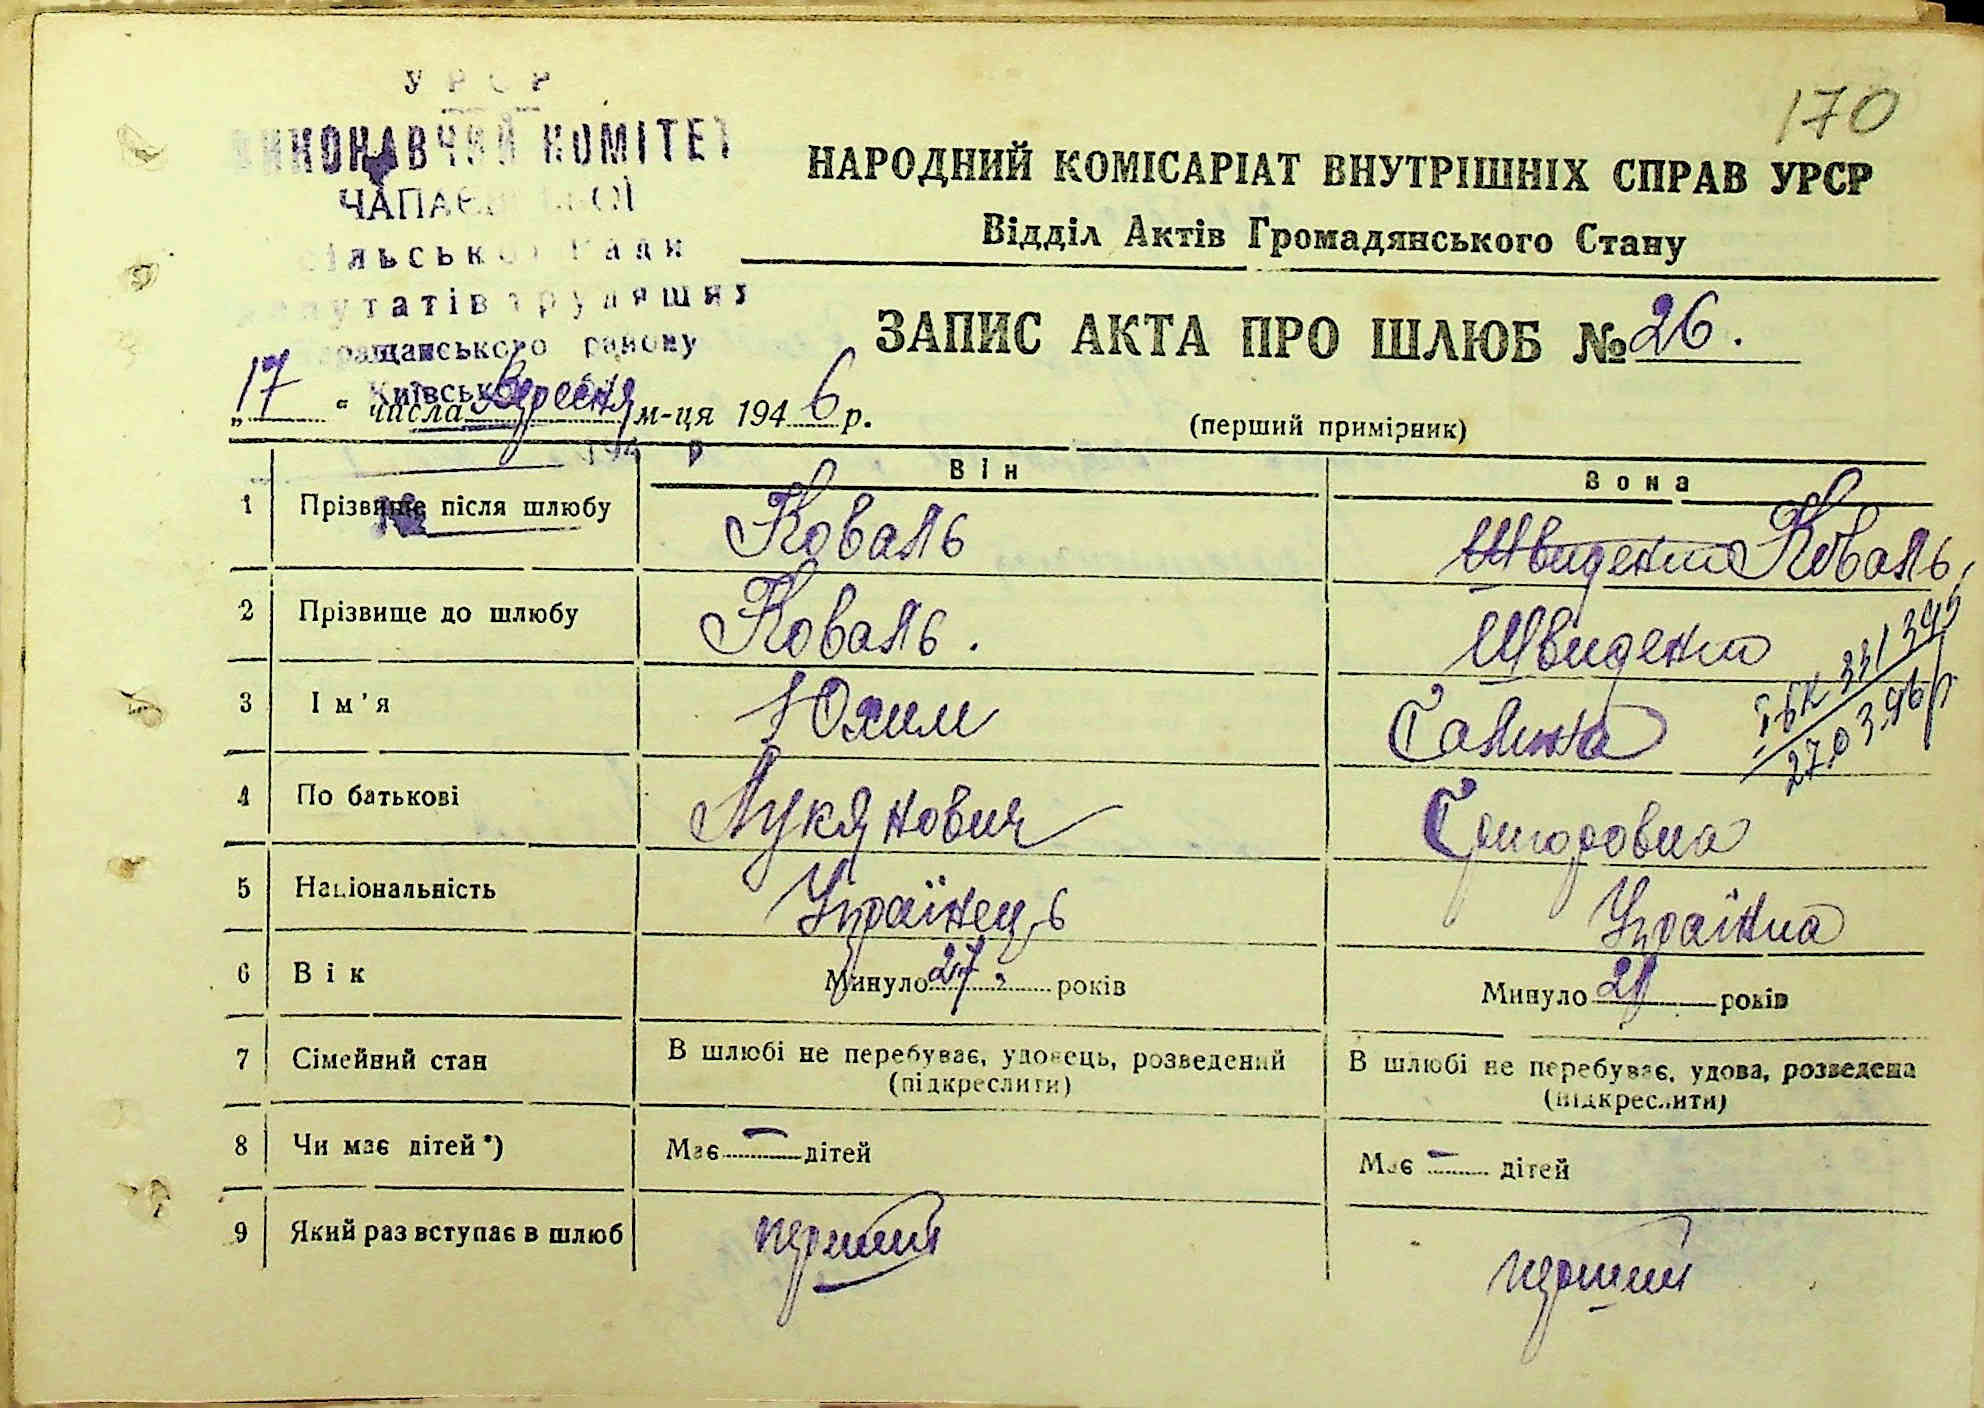 УРСР
ВИКОНАВЧИЙ КОМІТЕТ
ЧАПАЄВСЬКОЇ
сільської Ради
депутатів трудящих
Таращанського району
Київської
194 р
№
170
НАРОДНИЙ КОМІСАРІАТ ВНУТРІШНІХ СПРАВ УРСР
Відділ Актів Громадянського Стану
ЗАПИС АКТА ПРО ШЛЮБ № 26.
„17“ числа Вересня м-ця 1946 р.
(перший примірник)
Він Вона
1 Прізвище після шлюбу Коваль Швиденко Коваль
2 Прізвище до шлюбу Коваль. Швиденко
3 Ім'я Юхим Галина
І-БК 331345
27.03.96 р
4 По батькові Лукянович Григоровна
5 Національність Українець Українка
6 Вік Минуло 27 років Минуло 21 років
7 Сімейний стан В шлюбі не перебуває, удовець, розведений В шлюбі не перебуває, удова, розведена
(підкреслити) (підкреслити)
8 Чи має дітей*) Має — дітей Має — дітей
9 Який раз вступає в шлюб перший перший